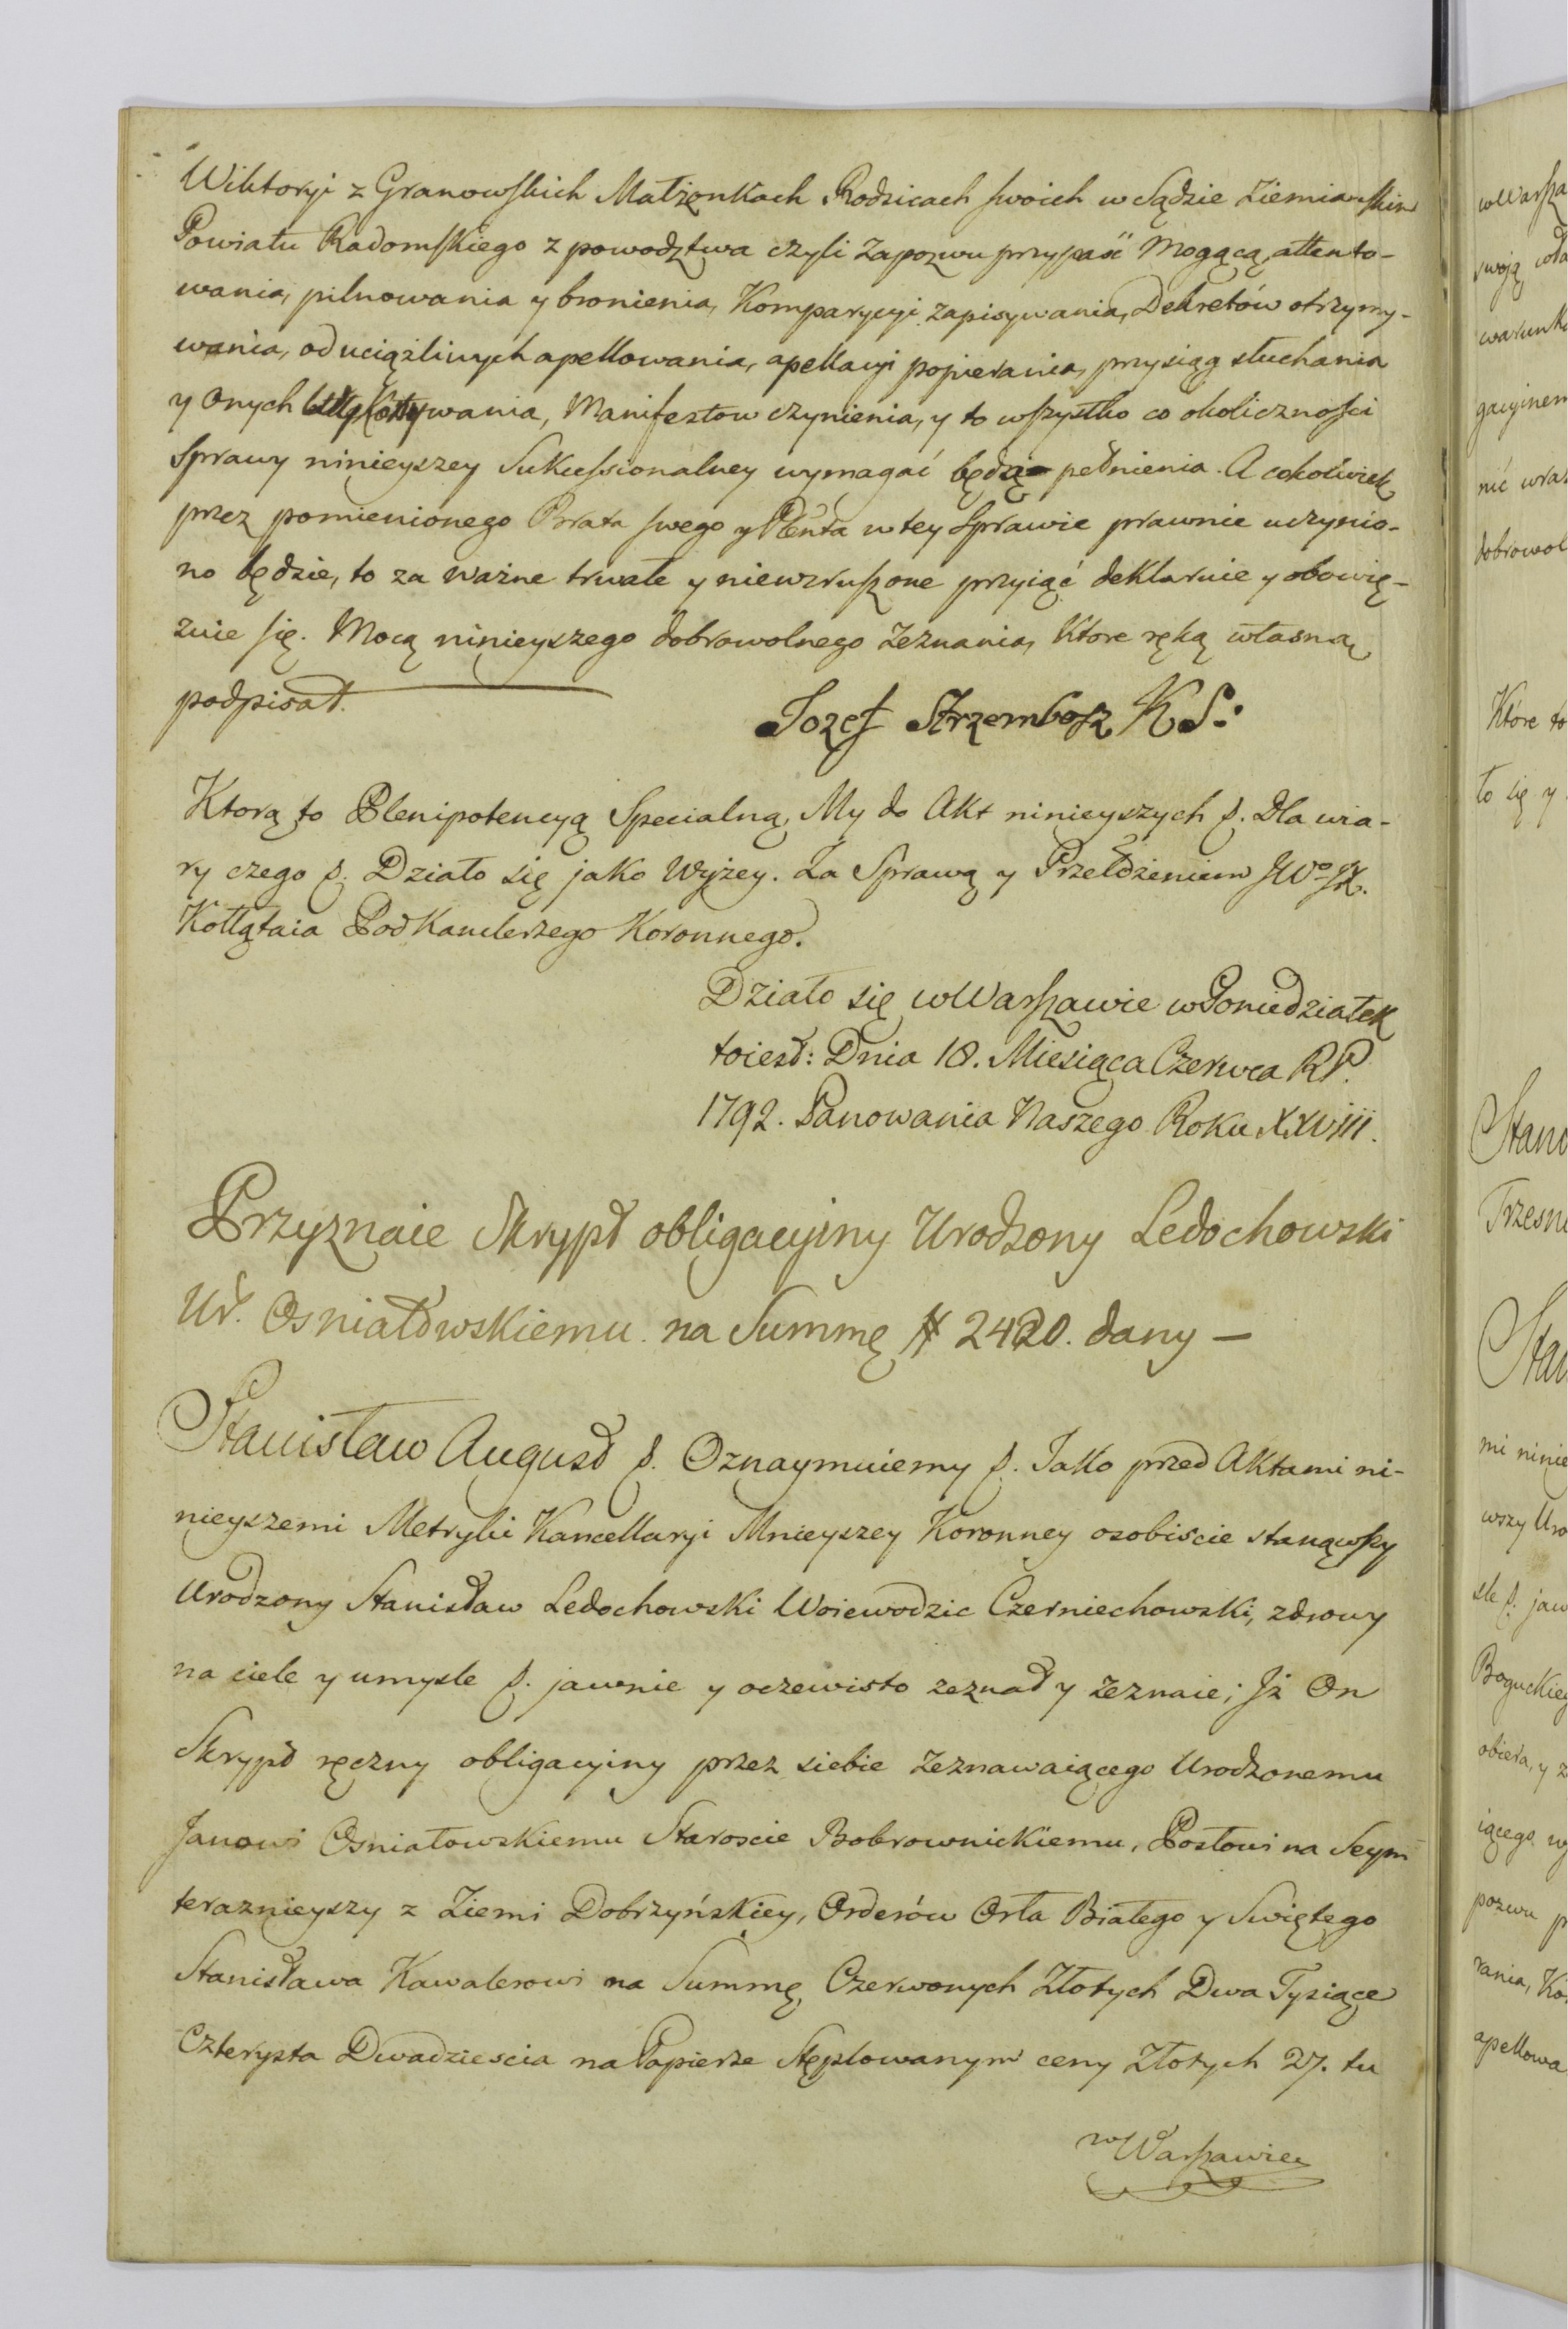 Wiktoryi z Granowskich Małżonkach Rodzicach swoich w Sądzie Ziemiańskim
Powiatu Radomskiego z powodztwa czyli Zapozwu przypaść Mogącą, attento-
wania, pilnowania y bronienia, Komparycyi zapisywania, Dekretów otrzymy-
wania, od uciążliwych apellowania, apellacyi popierania, przysiąg słuchania
y onych wania, Manifestow czynienia, y to wszystko co okoliczności
Sprawy ninieyszey Sukcessionalney wymagać będą pełnienia. A cokolwiek
przez pomienionego Brata swego y Plenta w tey Sprawie prawnie uczynio-
no będzie, to za ważne trwałe y niewzruszone przyiąć deklaruie y obowię-
zuie się. Mocą ninieyszego dobrowolnego Zeznania, Ktore ręką własną
podpisał.
Jozef Strzembosz K S:
Ktorą to Plenipotencyą Specialną, My do Akt ninieyszych p. Dla wia-
ry czego p. Działo się jako Wyżey. Za Sprawą y Przełożeniem JWo JX.
Kołłątaia PodKanclerzego Koronnego.
Działo się w Warszawie w Poniedziałek
toiest: Dnia 18. Miesiąca Czerwca RP.
1792. Panowania Naszego Roku XXVIII.
Przyznaie Skrypt obligacyiny Urodzony Ledochowski
Ur. Osniałowskiemu na Summę # 2420. dany —
Stanisław August p. Oznaymuiemy p. Jako przed Aktami ni-
nieyszemi Metryki Kancellaryi Mnieyszey Koronney osobiscie stanąwszy
Urodzony Stanisław Ledochowski Woiewodzic Czerniechowski, zdrowy
na ciele y umysle p. jawnie y oczewisto zeznał y zeznaie; Jż On
Skrypt ręczny obligacyiny przez siebie zeznawaiącego Urodzonemu
Janowi Osniałowskiemu Staroscie Bobrownickiemu, Posłowi na Seym
teraznieyszy z Ziemi Dobrzyńskiey, Orderów Orła Białego y Swiętego
Stanisława Kawalerowi na Summę Czerwonych Złotych Dwa Tysiące
Czterysta Dwadziescia na Papierze Stęplowanym ceny Złotych 27. tu
w Warszawie